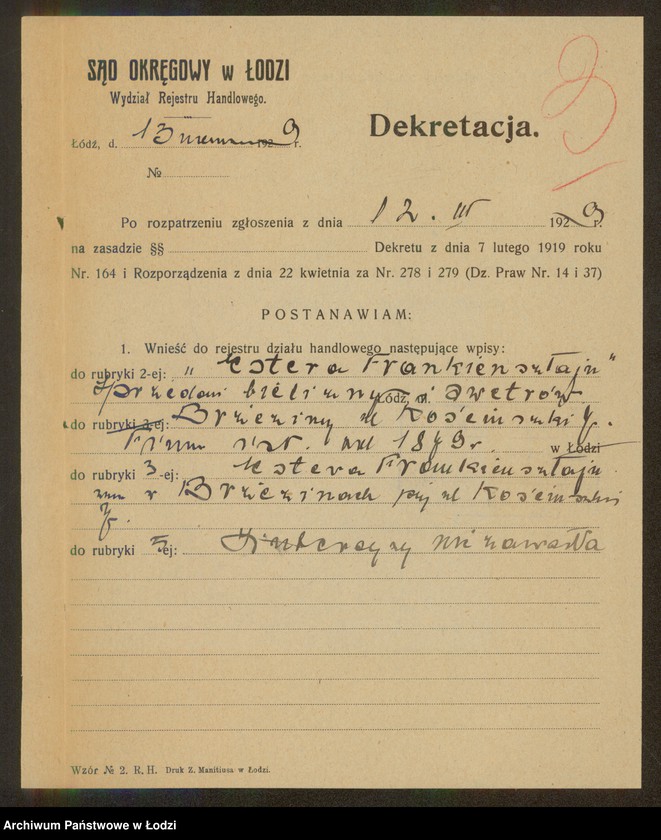 SĄD OKRĘGOWY w ŁODZI
Wydział Rejestru Handlowego.
Łódź, d. 13 192 9 r.
№
Dekretacja.
3
Po rozpatrzeniu zgłoszenia z dnia 12. III 192 9 r.
na zasadzie §§ Dekretu z dnia 7 lutego 1919 roku
Nr. 164 i Rozporządzenia z dnia 22 kwietnia za Nr. 278 i 279 (Dz. Praw Nr. 14 i 37)
POSTANAWIAM:
1. Wnieść do rejestru działu handlowego następujące wpisy:
do rubryki 2-ej: „Estera Frankiensztajn"
Sprzedaż bielizny i swetrów
Łódź, ul.
do rubryki 3-ej: Brzeziny ul Kościuszki 7.
Firma ist. od 1879 r. w Łodzi
do rubryki 3-ej: Estera Frankiensztajn
zam w Brzezinach przy ul Kościuszki
7.
do rubryki 5-ej: Intercyzy nie zawarła
Wzór № 2. R. H. Druk Z. Manitiusa w Łodzi.
Archiwum Państwowe w Łodzi